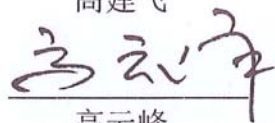 高建飞
高云峰
高云峰